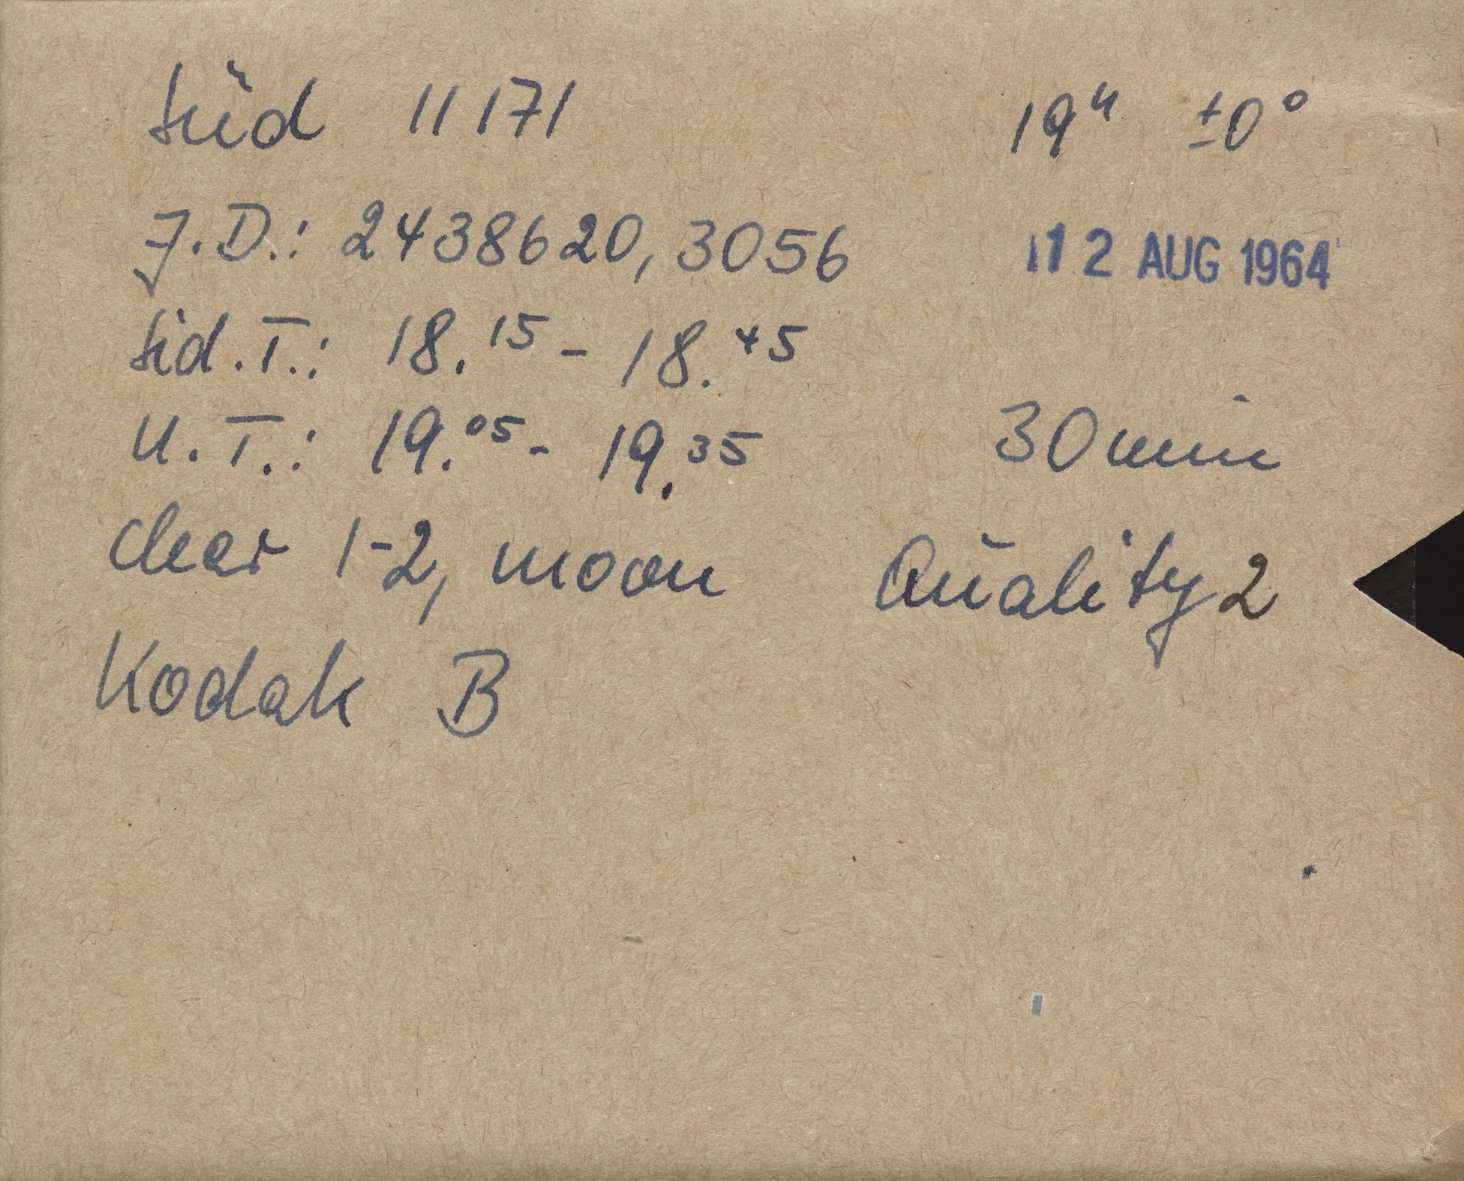 Süd 11171 19ʰ ±0°
J.D.: 2438620,3056 12 AUG 1964
Sid.T.: 18.¹⁵ - 18.⁴⁵
U.T.: 19.⁰⁵ - 19.³⁵ 30 min
clear 1-2, moon Quality 2
Kodak B